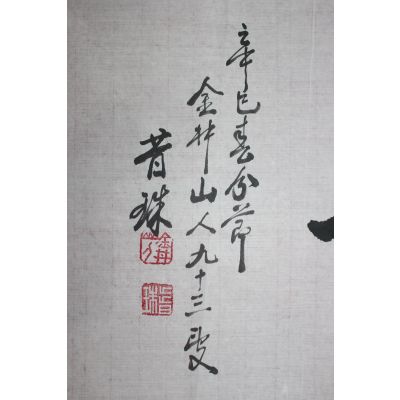 辛巳春分節
金井山人九十三叟
昔珠